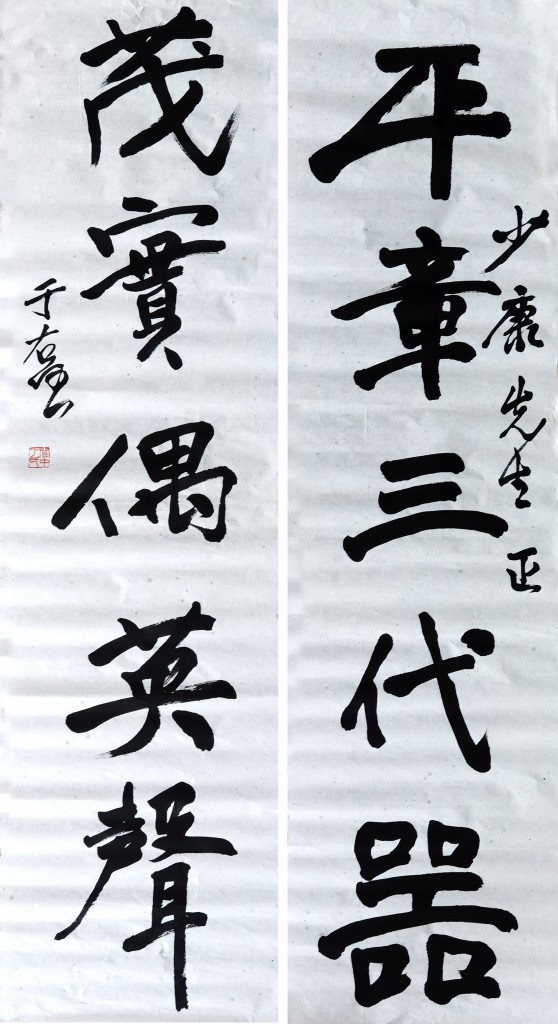 少康先生正
平章三代器
茂實偶英聲
于右任